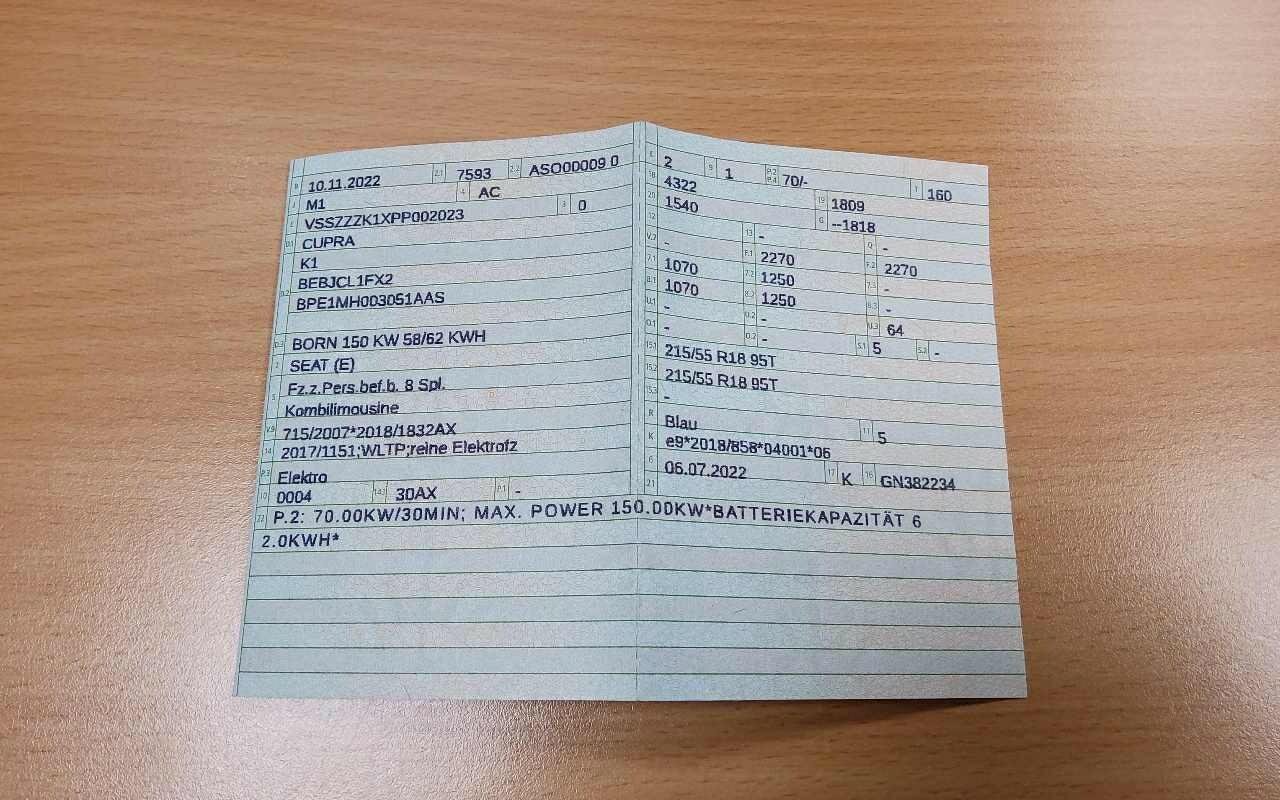 B 10.11.2022 2.1 7593 2.2 ASO00009 0
J M1 4 AC
E VSSZZZK1XPP002023 3 0
D.1 CUPRA
K1
D.2 BEBJCL1FX2
BPE1MH003051AAS
D.3 BORN 150 KW 58/62 KWH
2 SEAT (E)
5 Fz.z.Pers.bef.b. 8 Spl.
Kombilimousine
V.9 715/2007*2018/1832AX
14 2017/1151;WLTP;reine Elektrofz
P.3 Elektro
10 0004 14.1 30AX P.1 -
L 2 9 1 P.2 P.4 70/- T 160
18 4322 19 1809
20 1540 G --1818
12 - 13 - Q -
V.7 - F.1 2270 F.2 2270
7.1 1070 7.2 1250 7.3 -
8.1 1070 8.2 1250 8.3 -
U.1 - U.2 - U.3 64
O.1 - O.2 - S.1 5 S.2 -
15.1 215/55 R18 95T
15.2 215/55 R18 95T
15.3 -
R Blau 11 5
K e9*2018/858*04001*06
6 06.07.2022 17 K 16 GN382234
21
22 P.2: 70.00KW/30MIN; MAX. POWER 150.00KW*BATTERIEKAPAZITÄT 6
2.0KWH*